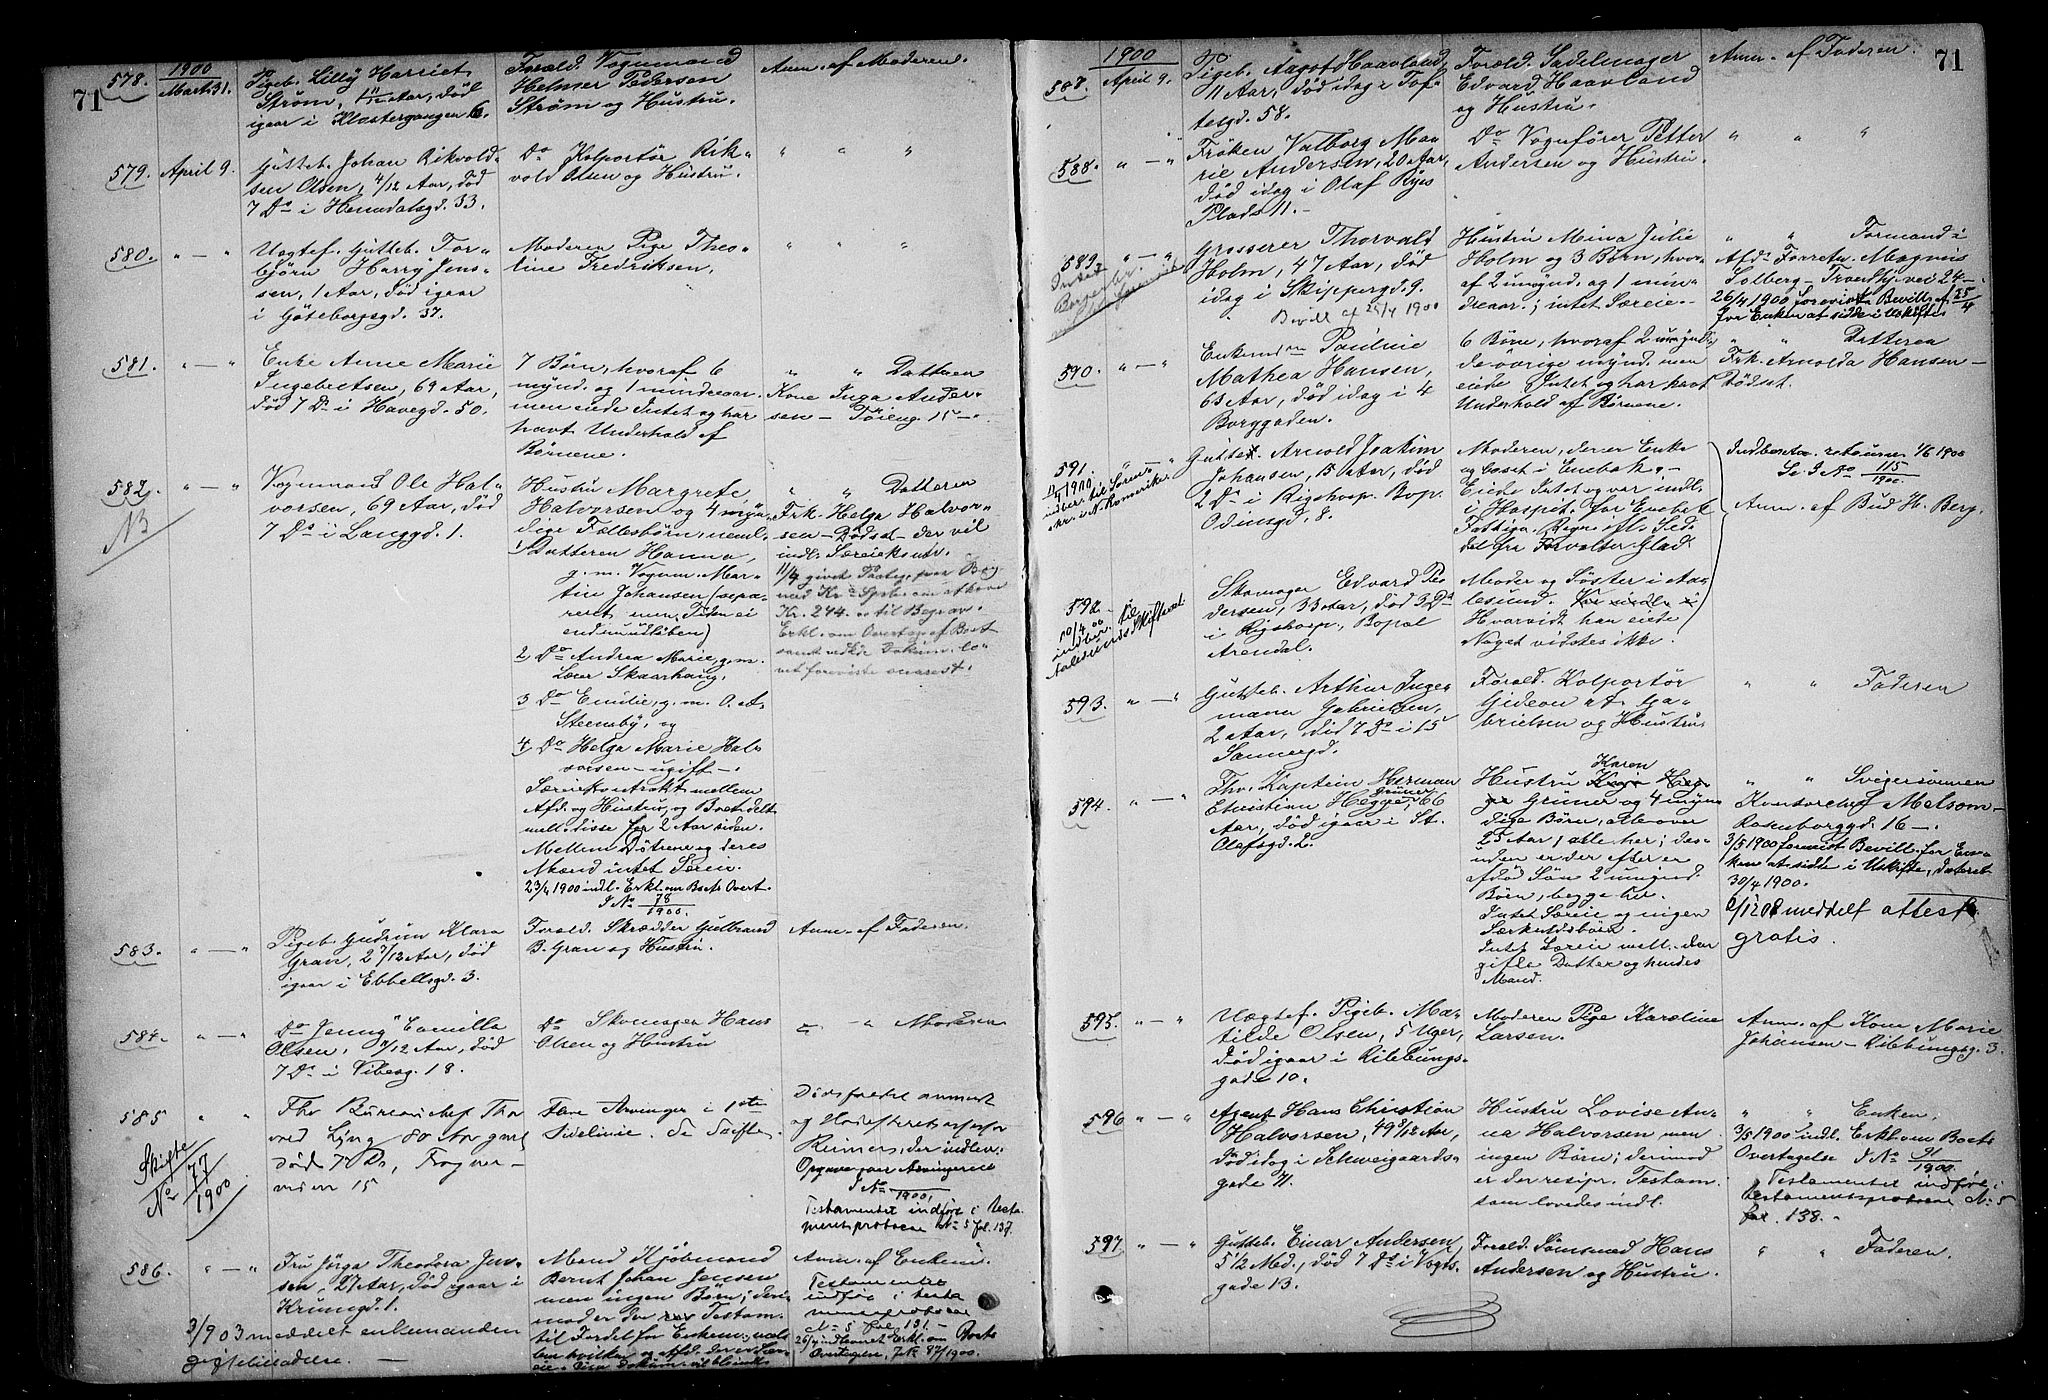 71
578.
1900
Mart. 31.
Pigeb. Lilly Harriet
Strøm, 1 1/12 Aar, død
igaar i Klostergangen 6.
Foræld. Vognmand
Helmer Pedersen
Strøm og Hustru.
Anm. af Moderen.
579.
April 9.
Gutteb. Johan Rikvold-
sen Olsen, 4/12 Aar, død
7 Ds i Hemdalsgd. 33.
Do Kolportør Rik-
vold Olsen og Hustru.
" " "
580.
" — "
Uægtef. Gutteb. Tor-
bjørn Harry Jens-
sen, 1 Aar, død igaar
i Göteborgsgd. 37.
Moderen Pige Theo-
line Fredriksen.
" " "
581.
" — "
Enke Anne Marie
Ingebretsen, 69 Aar,
død 7 Ds i Havegd. 50.
7 Børn, hvoraf 6
mynd. og 1 mindreaar.
men eiede Intet og har
havt Underhold af
Børnene.
" " Datteren
Kone Inga Ander-
sen — Tøieng. 15 —.
582.
NB
" — "
Vognmand Ole Hal-
vorsen, 69 Aar, død
7 Ds i Langgd. 1.
Hustru Margrete
Halvorsen og 4 myn-
dige Fællesbørn, neml.
1) Datteren Hanna,
g. m. Vognm. Mar-
tin Johansen (sepa-
reret men Tiden ei
endnu udløben)
2 Do Andrea Marie, g. m.
Lærer Skaarhaug,
3 Do Emilie, g. m. O. A.
Steensby, og
4 Do Helga Marie Hal-
vorsen — ugift —.
Særiekontrakt mellem
Afd. og Hustru, og Boet delt
mell. disse for 2 Aar siden.
Mellem Døtrene og deres
Mænd intet Særeie.
23/4 1900 indl. Erkl. om Boets Overt.
J No 78/1900.
" " Datteren
Frk. Helga Halvor-
sen — Dødsst. — der vil
indl. Særeiekontr.
11/4 givet Paateg. paa Bog
med Kr.a Sparb. om at hæve
Kr. 244. — til Begrav.
Erkl. om Overtag. af Boet
583.
" — "
Pigeb. Gudrun Klara
Gran, 2 7/12 Aar, død
igaar i Ebbellsgd. 3.
Foræld. Skrædder Gulbrand
B. Gran og Hustru.
Anm. af Faderen.
584.
" — "
Do Jenny Camilla
Olsen, 7/12 Aar, død
7 Ds i Vibesg. 18.
Do Skomager Hans
Olsen og Hustru
" — " Moderen
585
Skifte
No 77/1900
" "
Fhv Bureauchef Thor
vald Lyng 80 Aar gml
død 7 Ds, Frogner-
veien 15
Flere Arvinger i 1ste
Sidelinie. Se Skifte.
Dødsfaldet anmeldt
Reimers, der indlev.
Opgave paa Arvingerne
J No /1900.
Testamentet indført i Testa
mentsprotocol No 5 fol. 137.
586.
" — "
Fru Jørga Theodora Jen-
sen, 27 Aar, død igaar i
Krumgd. 1.
3/ 903 meddelt enkemanden
Mand Kjøbmand
Bernt Johan Jensen
men ingen Børn; deri-
mod er der Testam.
til Fordel for Enkem.,
Anm. af Enkem.
Testamentet
indført i testa
mentsprotocol
No 5 fol. 131. —
26/4 indleveret Erkl. om Boets
Overtagelse, J No 87/1900.
71
587.
1900
April 9.
Pigeb. Aagot Haavland,
11 Aar, død idag i Tof-
tesgd. 58.
Foræld. Sadelmager
Edvard Haavland
og Hustru.
Anm. af Faderen.
588.
" — "
Frøken Valborg Ma-
rie Andersen, 20 Aar,
død idag i Olaf Ryes
Plads 11. —
Do Vognfører Petter
Andersen og Hustru.
" " "
589.
" — "
Grosserer Thorvald
Holm, 47 Aar, død
idag i Skippergd. 9.
Bevill af 25/4 1900
Hustru Mina Julie
Holm og 3 Børn, hvor-
af 2 umynd. og 1 min-
dreaar.; intet Særeie. —
" " Formand i
Afd.s Forretn. Magnus
Solberg — Trondhj.vei 24 —
26/4 1900 forevist Bevill. af 25/4
for Enken at sidde i Uskifte.
590.
" — "
Enkemdm Pauline
Mathea Hansen,
63 Aar, død idag i 4
Borggaden.
6 Børn, hvoraf 2 umynd.,
de øvrige mynd. men
eiede Intet og har havt
Underhold af Børnene.
" " Datteren
Frk. Arnolda Hansen —
Dødsst.
591.
11/4 1900.
indber. til Soren-
skr. i N. Romerike.
— "
Gutteb. Arnold Joakim
Johansen, 15 Aar, død
2 Ds i Rigshosp. Bop.
Odinsgd. 8.
Moderen, der er Enke
og bosat i Enebak. —
Eiede Intet og var indl.
i Hospit. for Enebak
Fattigv. Regn. ifl. Sed-
del fra Forvalter Glad.
Indberetn. returneret 1/6 1900
Se J No 115/1900.
Anm. af Bud H. Berg.
592.
10/4 00
indber. til
Aalesunds Skifteret.
Skomager Edvard Pe-
dersen, 33 Aar, død 3 Ds
i Rigshosp., Bopal
Arendal.
Moder og Søster i Aa-
lesund.
Hvorvidt han eiede
Noget vidstes ikke.
593.
" — "
Gutteb. Arthur Inge-
mann Gabrielsen,
2 Aar, død 7 Ds i 15
Sannergd.
Foræld. Kolportør
Gideon A. Ga-
brielsen og Hustru.
" " Faderen
594.
" — "
Fhv. Kaptein Herman
Christian Hegge Grüner, 66
Aar, død igaar i St.
Olafsgd. 2.
Hustru Karen
Grüner og 4 myn-
dige Børn, alle over
25 Aar, alle her; des-
uden er der efter en
afdød Søn 2 umynd.
Børn, begge her.
Intet Særeie og ingen
Særkuldsbørn.
Intet Særeie mell. den
gifte Datter og hendes
Mand.
" " Svigersønnen
Kontorchef Melsom —
Rosenborggd. 16 —.
3/5 1900 forevist Bevill. for En-
ken at sidde i Uskifte, dateret
30/4 1900.
6/12 08 meddelt attest
gratis.
595.
" — "
Uægtef. Pigeb. Ma-
tilde Olsen, 5 Uger,
død igaar i Ribbungs-
gade 10.
Moderen Pige Karoline
Larsen.
Anm. af Kone Marie
Johansen — Ribbungsg. 3.
596
" — "
Agent Hans Christian
Halvorsen, 49 8/12 Aar,
død idag i Schweigaards-
gade 71.
Hustru Lovise An-
na Halvorsen men
ingen Børn; derimod
er der resipr. Testam.
som lovedes indl.
" " Enken.
3/5 1900 indl. Erkl. om Boets
Overtagelse J No 91/1900.
Testamentet indført i
testamentsprotocol No 5
fol. 138. —
597
" — "
Gutteb. Einar Andersen,
5 1/2 Md., død 7 Ds i Vogts-
gade 13.
Foræld. Tømmermd Hans
Andersen og Hustru.
" " Faderen.